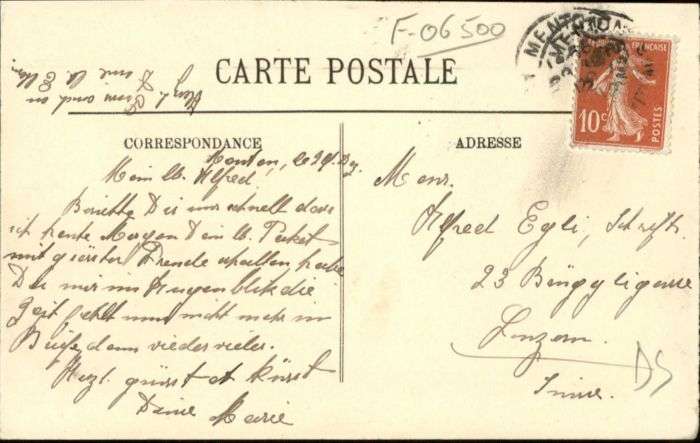 F-06500
MENTON
CARTE POSTALE
FRANÇAISE
10c
POSTES
CORRESPONDANCE
ADRESSE
Menton, le
Mein lb. Alfred,
Berichte Dir nur schnell dass
ich heute Morgen Dein lb. Packet
mit grösster Freude erhalten habe
Da mir im Augenblick die
Zeit fehlt nun nicht mehr im
Briefe dann wieder vieles.
Herzl. grüsst & küsst
Deine Marie
Mons.
Alfred Egli, Schrifts.
23 Bürgligasse
Luzern.
Suisse.
DS